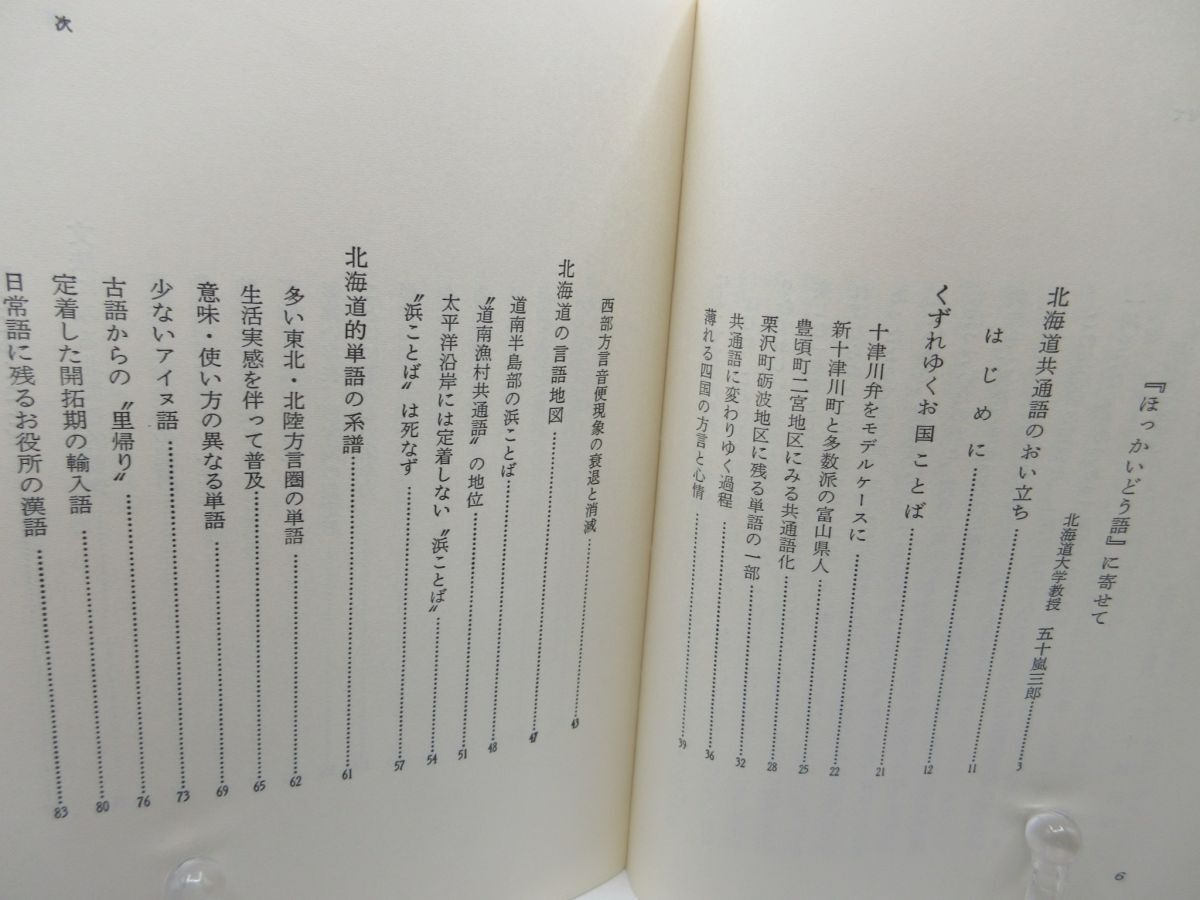 『ほっかいどう語』に寄せて
北海道大学教授 五十嵐三郎……3
北海道共通語のおい立ち……11
はじめに……12
くずれゆくお国ことば……21
十津川弁をモデルケースに……22
新十津川町と多数派の富山県人……25
豊頃町二宮地区にみる共通語化……28
栗沢町砺波地区に残る単語の一部……32
共通語に変わりゆく過程……36
薄れる四国の方言と心情……39
6
次
西部方言音便現象の衰退と消滅……43
北海道の言語地図……47
道南半島部の浜ことば……48
〝道南漁村共通語〟の地位……51
太平洋沿岸には定着しない〝浜ことば〟……54
〝浜ことば〟は死なず……57
北海道的単語の系譜……61
多い東北・北陸方言圏の単語……62
生活実感を伴って普及……65
意味・使い方の異なる単語……69
少ないアイヌ語……73
古語からの〝里帰り〟……76
定着した開拓期の輸入語……80
日常語に残るお役所の漢語……83